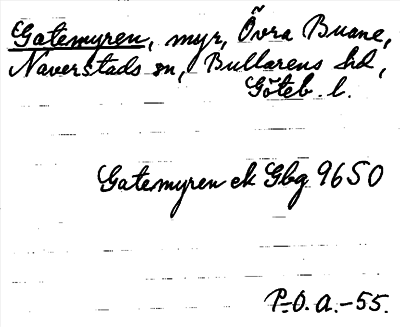 Gatemyren, myr, Övra Buane,
Naverstads sn, Bullarens hd,
Göteb. l.
Gatemyren ek Gbg 9650
P.O.A.-55.